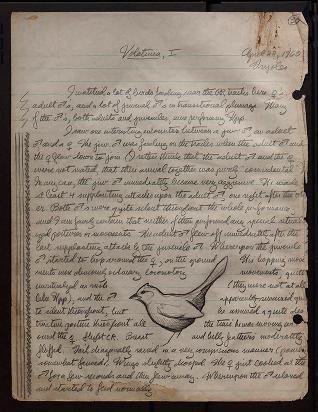 Volatinia, I.
April 22, 1960
I watched a lot of birds feeding near the RR tracks here. ♀s,
adult ♂s, and a lot of juvenal ♂s in transitional plumage. Many
of the ♂s, both adults and juveniles, were performing Hops.
I saw one interesting encounter between a juv. ♂, an adult
♂ and a ♀. The juv. ♂ was feeding in the tracks when the adult ♂ and
the ♀ flew down to join (I rather think that the adult ♂ and the ♀
were not mated, that their arrival together was purely coincidental.
In any case, the juv. ♂ immediately became very aggressive. He made
at least 4 supplanting attacks upon the adult ♂, one right after the oth-
er. Both ♂s were quite silent throughout the whole performance
and I am fairly certain that neither
postures or movements. The adult ♂ flew off immediately after the
last supplanting attack by the juvenile ♂. Whereupon the juvenile
♂ started to hop around the ♀, on the ground. His hopping move-
ments were obviously ordinary locomotory movements, quite
(they were not at all
like Hops), and the ♂ apparently remained quite
silent throughout, but he assumed a quite dis-
tinctive posture throughout all the time he was moving ar-
ound the ♀. Slight CR. Breast and belly feathers moderately
fluffed. Tail diagonally raised in a very conspicuous manner
somewhat fanned. Wings slightly drooped. The ♀ just looked at the
♂ for a few seconds and then flew away. Whereupon the ♂ relaxed
and started to feed normally.